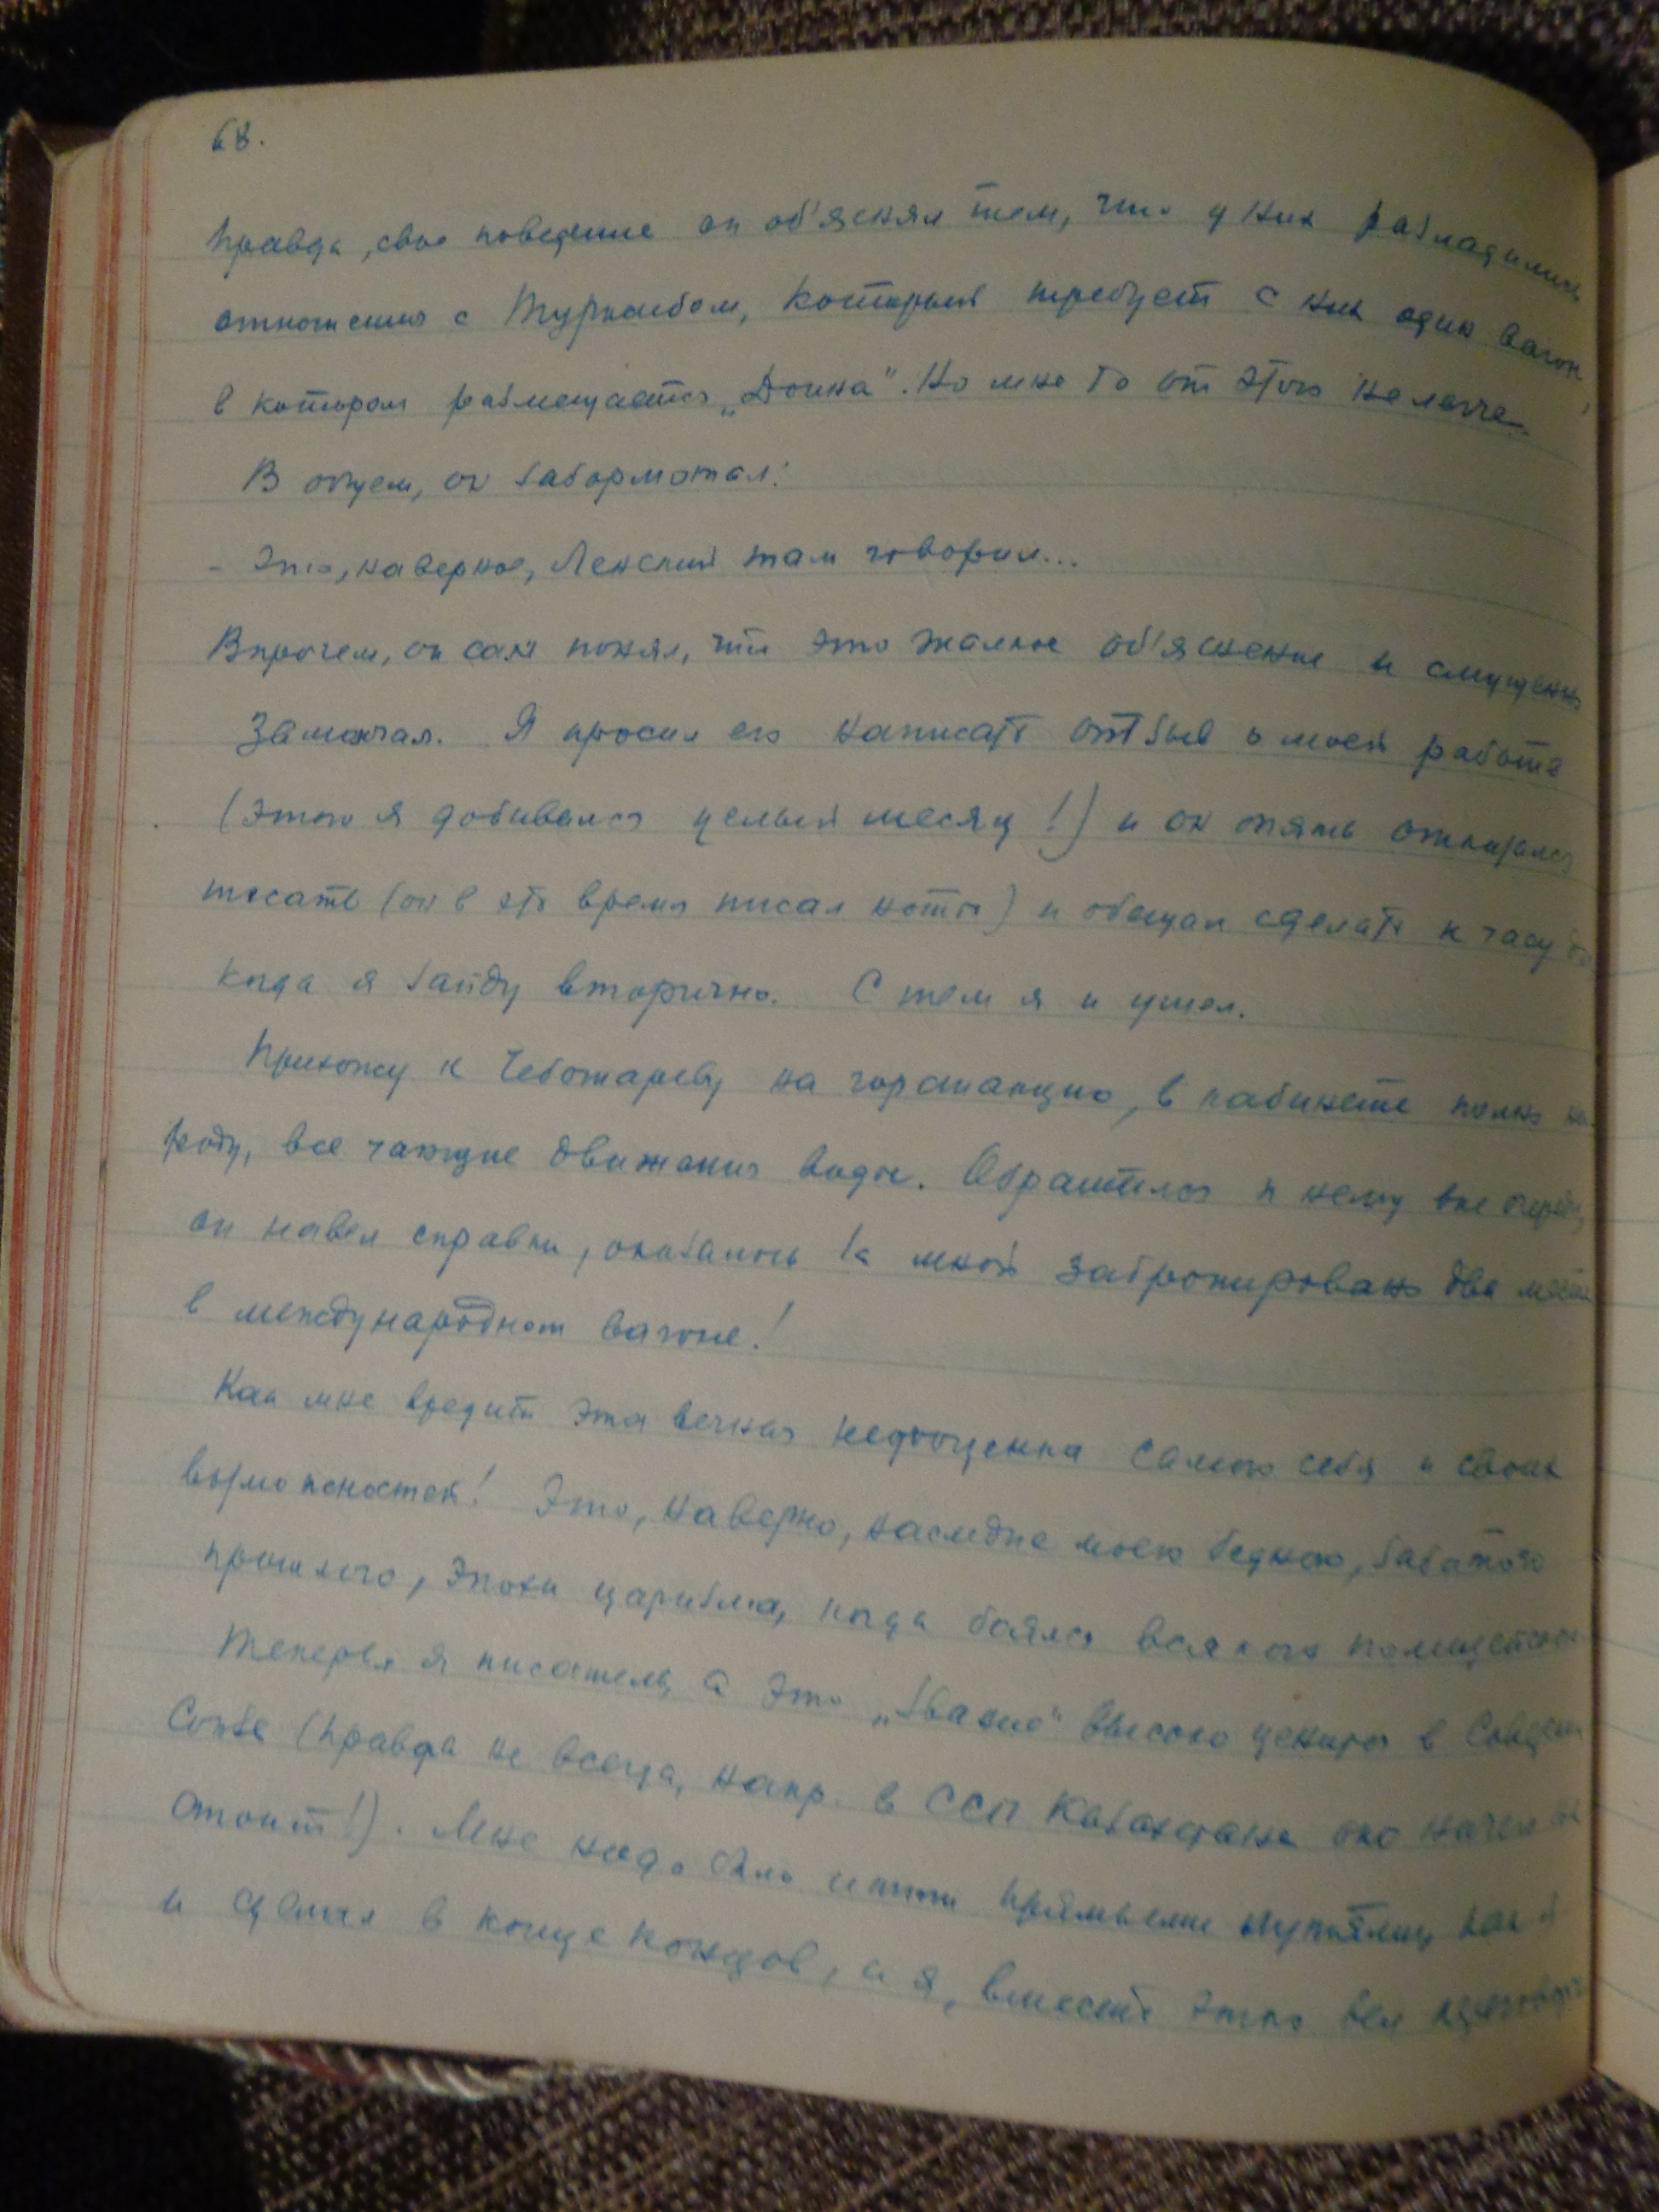 68.
Правда, свое поведение он об'яснял тем, что у них разладились
отношения с Турксибом, который требует с них один вагон,
в котором размещается „Доина". Но мне то от этого не легче.
В общем, он забормотал:
- Это, наверное, Ленский там говорил...
Впрочем, он сам понял, что это жалкое об'яснение и смущенно
замолчал. Я просил его написать отзыв о моей работе
(этого я добивался целый месяц!) и он опять отказался
писать (он в это время писал ноты) и обещал сделать к часу
когда я зайду вторично. С тем я и ушел.
Прихожу к Чеботареву на горстанцию, в кабинете полно на-
роду, все чающие движения воды. Обратился к нему вне очереди,
он навел справки, оказалось за мной забронировано два места
в международном вагоне!
Как мне вредит эта вечная недооценка самого себя и своих
возможностей! Это, наверно, наследие моего бедного, забитого
прошлого, эпохи царизма, когда боялся всяких
Теперь я писатель, а это „звание" высоко ценится в Советском
Союзе (правда не всегда, напр. в ССП Казахстана оно ничего не
стоит!). Мне надо было итти прямыми путями, как я
и сделал в конце концов, а я, вместо этого вел переговоры